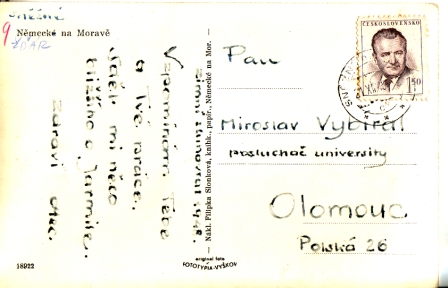 Sněžné
9 ŽĎÁR
Německé na Moravě
Zimní 1948.
Vzpomínám Tebe
a Tvé práce.
Uděl mi něco
bližšího o Jarmile.
Zdraví otec.
— Nákl. Filipka Slonková, knihk., papír., Německé na Mor. —
18922
original foto
FOTOTYPIA-VYŠKOV
ČESKOSLOVENSKO
1,50
Pan
Miroslav Vybíral
posluchač university
Olomouc
Polská 26